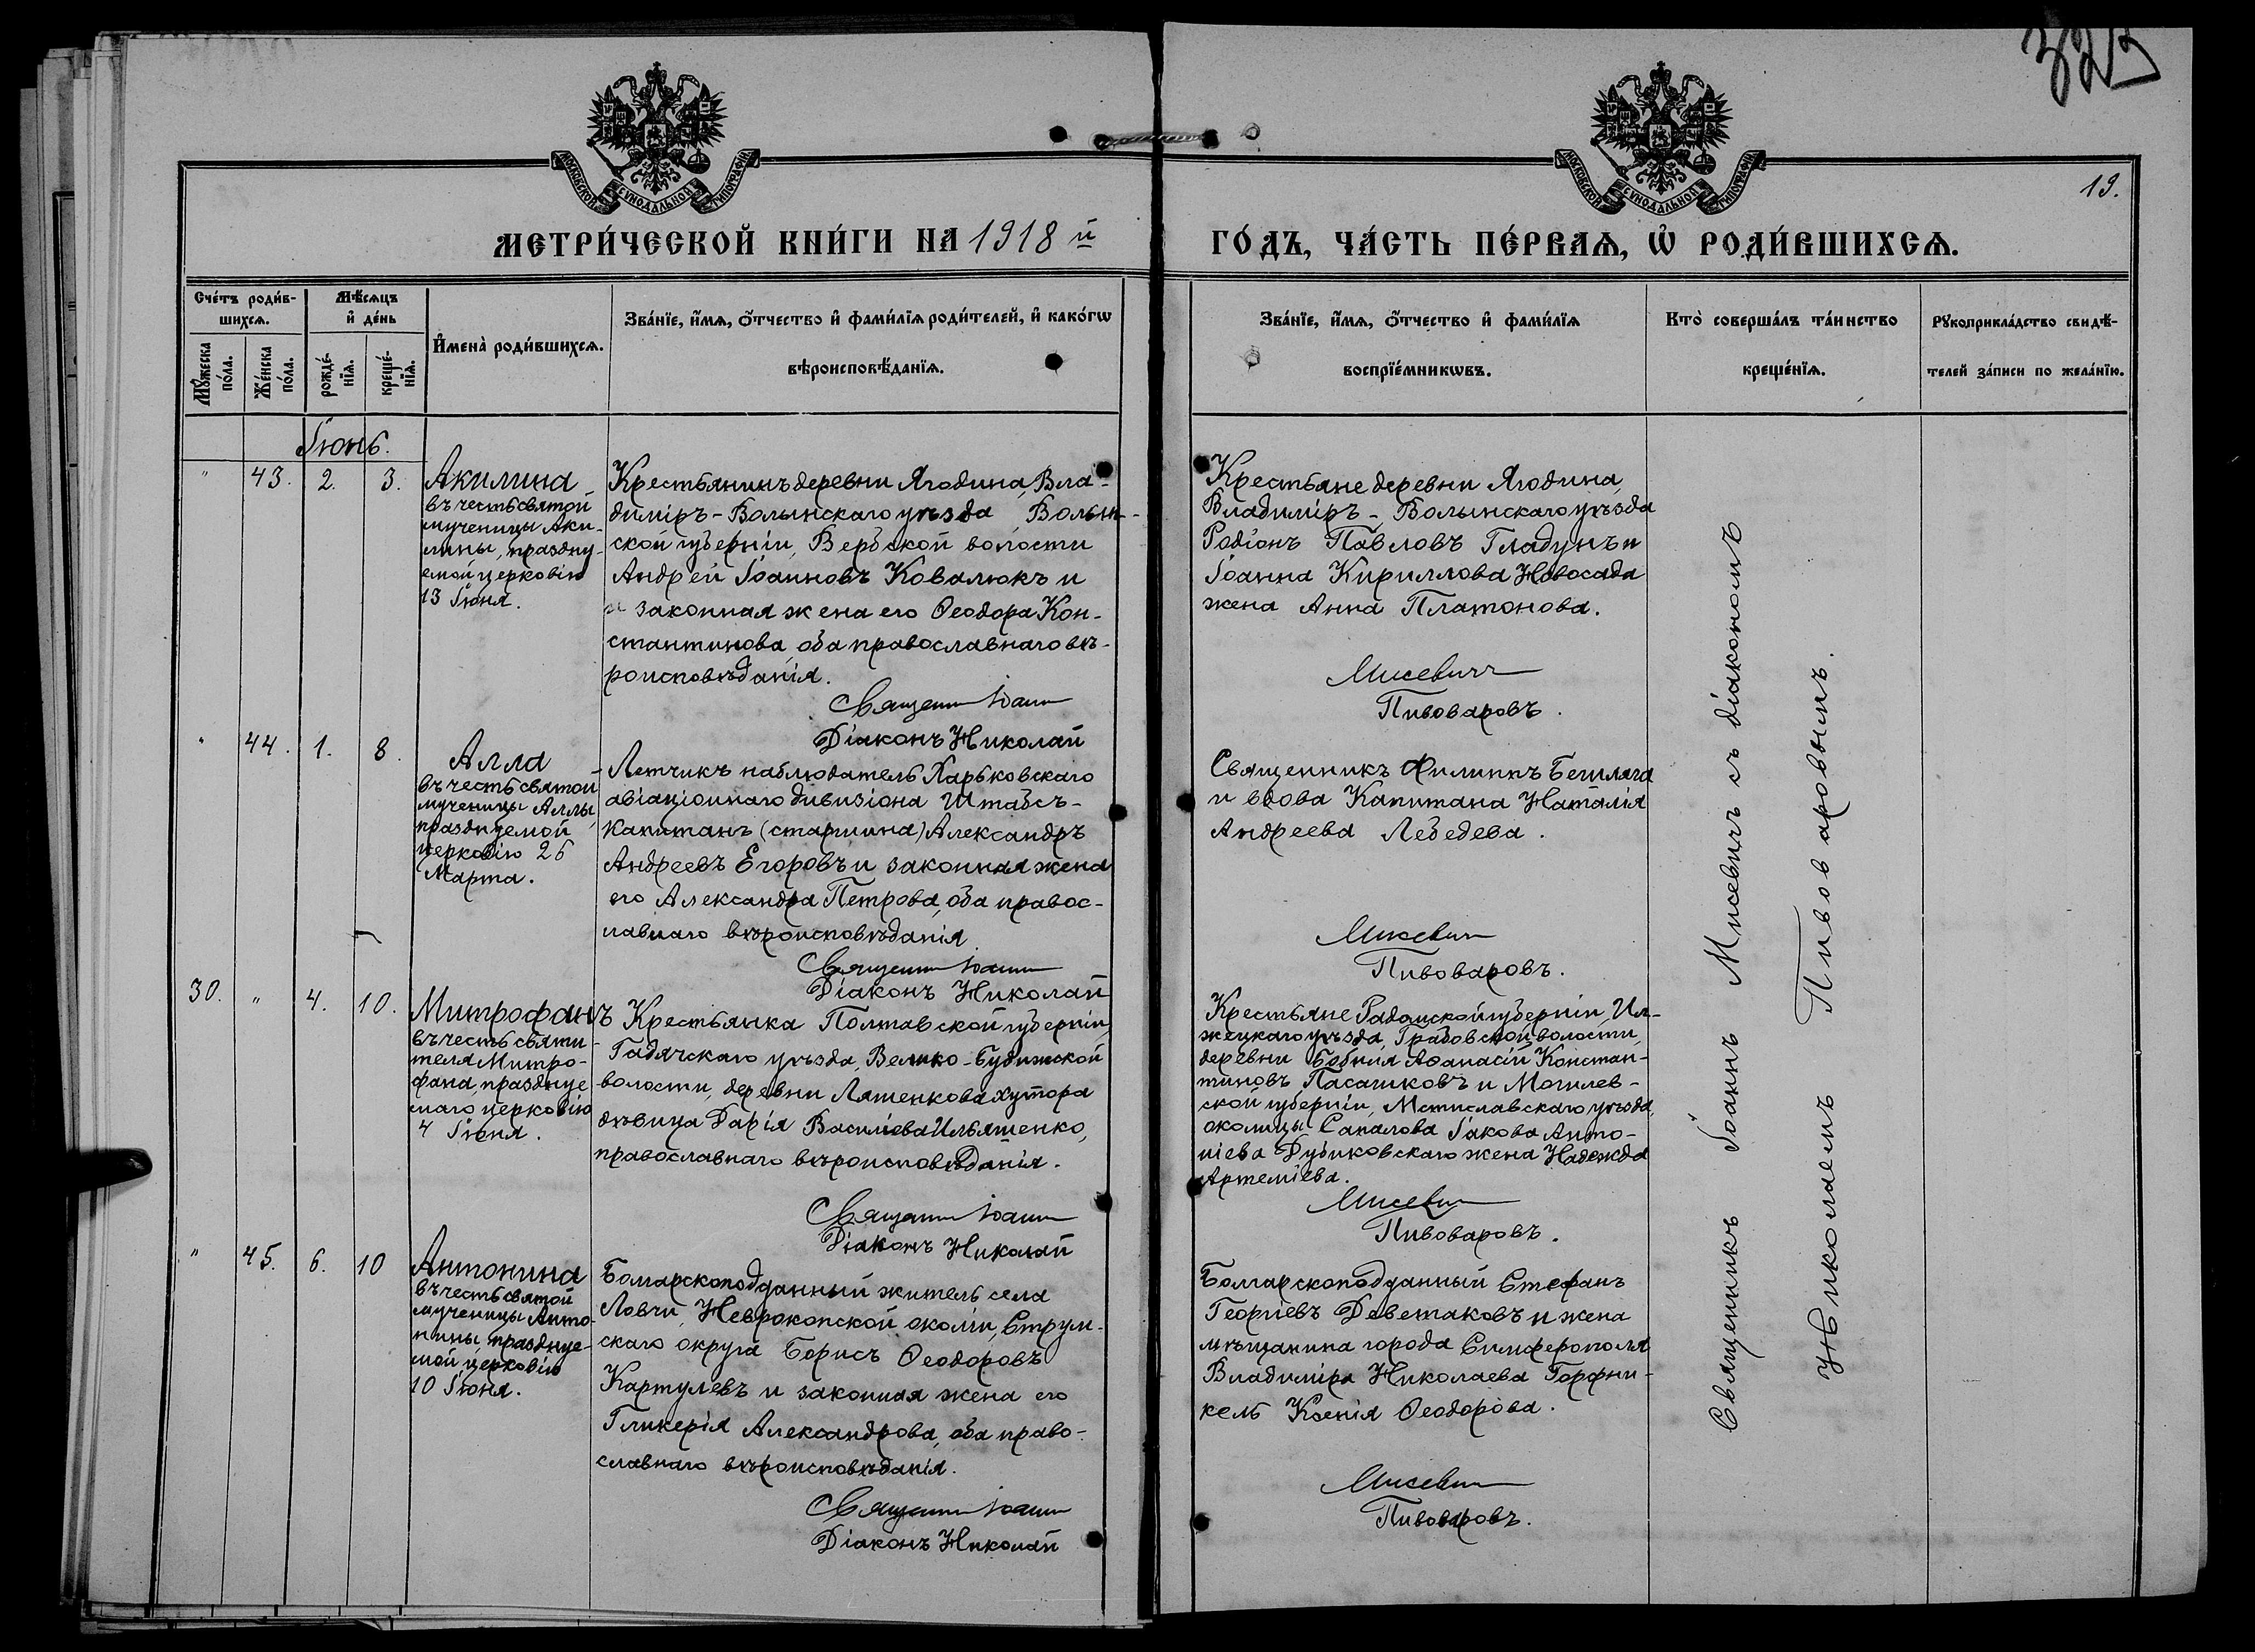 325
МОСКОВСКОЙ СУНОДАЛЬНОЙ ТИПОГРАФІИ
МОСКОВСКОЙ СУНОДАЛЬНОЙ ТИПОГРАФІИ
19.
МЕТРИ́ЧЕСКОЙ КНИ́ГИ НА 1918 й
ГО́ДЪ, ЧА́СТЬ ПЕ́РВАѦ, Ѡ РОДИ́ВШИХСѦ.
Сче́тъ роди́в-
шихсѧ.
Мꙋжеска
по́ла.
Же́нска
по́ла.
Мѣ́сѧцъ
и де́нь
рожде́-
нїѧ.
креще́-
нїѧ.
И҆мена̀ роди́вшихсѧ.
Зва́нїе, и҆́мѧ, ѻ҆́тчество и҆ фами́лїѧ роди́телей, и҆ како́гѡ
вѣроисповѣ́данїѧ.
Зва́нїе, и҆́мѧ, ѻ҆́тчество и҆ фами́лїѧ
воспрїе́мникѡвъ.
Кто̀ соверша́лъ та́инство
креще́нїѧ.
Рꙋкоприкла́дство свидѣ́-
телей за́писи по жела́нїю.
Іюнь.
" 43. 2. 3.
Акилина
въ честь святой
мученицы Аки-
лины, праздну-
емой церковію
13 Іюня.
Крестьянинъ деревни Ягодина, Вла-
диміръ-Волынскаго уѣзда, Волын-
ской губерніи, Вербской волости
Андрей Іоанновъ Ковалюкъ и
и законная жена его Ѳеодора Кон-
стантинова, оба православнаго вѣ-
роисповѣданія.
Священн Іоанн
Діаконъ Николай
Крестьяне деревни Ягодина,
Владиміръ-Волынскаго уѣзда
Родіонъ Павловъ Гладунъ и
Іоанна Кириллова Новосада
жена Анна Платонова.
Мисевичъ
Пивоваровъ.
" 44. 1. 8.
Алла
въ честь святой
мученицы Аллы,
празднуемой
церковію 26
Марта.
Летчикъ наблюдатель Харьковскаго
авіаціоннаго дивизіона Штабсъ-
Капитанъ (старшина) Александръ
Андреевъ Егоровъ и законная жена
его Александра Петрова, оба правос-
лавнаго вѣроисповѣданія
Священн Іоанн
Діаконъ Николай
Священникъ Филиппъ Бешляга
и вдова Капитана Наталія
Андреева Лебедева.
Мисевич
Пивоваровъ.
30. " 4. 10.
Митрофанъ
въ честь святи-
теля Митро-
фана, праздuуе
маго церковію
4 Іюня.
Крестьянка Полтавской губерніи
Гадячскаго уѣзда, Велико-Будижской
волости, деревни Ляшенкова хутора
дѣвица Дарія Василіева Ильяшенко,
православнаго вѣроисповѣданія.
Священн Іоанн
Діаконъ Николай
Крестьяне Радомской губерніи, Ил-
жецкаго уѣзда, Грабовской волости,
деревни Бабиля Аѳанасій Констан-
тиновъ Пасашковъ и Могилев-
ской губерніи, Мстиславскаго уѣзда,
околицы Сапалова Іакова Анто-
ніева Дубиковскаго жена Надежда
Артеміева.
Мисевич
Пивоваровъ.
" 45. 6. 10
Антонина
въ честь святой
мученицы Анто-
нины, празднуе-
мой церковію
10 Іюня.
Болгарскоподданный житель села
Ловчи, Неврокопской околіи, Струм-
скаго округа Борисъ Ѳеодоровъ
Картулевъ и законная жена его
Гликерія Александрова, оба право-
славнаго вѣроисповѣданія.
Священн Іоанн
Діаконъ Николай
Болгарскоподданный Стефанъ
Георгіевъ Деветаковъ и жена
мѣщанина города Симферополя
Владиміра Николаева Гарфни-
кель Ксенія Ѳеодорова.
Мисевич
Пивоваровъ.
Священникъ Іоаннъ Мисевичъ съ діакономъ
Николаемъ Пивоваровымъ.